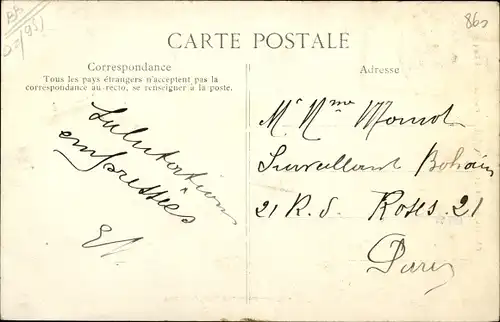 860
CARTE POSTALE
Correspondance
Tous les pays étrangers n'acceptent pas la
correspondance au recto, se renseigner à la poste.
Salutations
empressées
Adresse
Mr Mme
Surveillant
21 R. d. Roses. 21
Paris